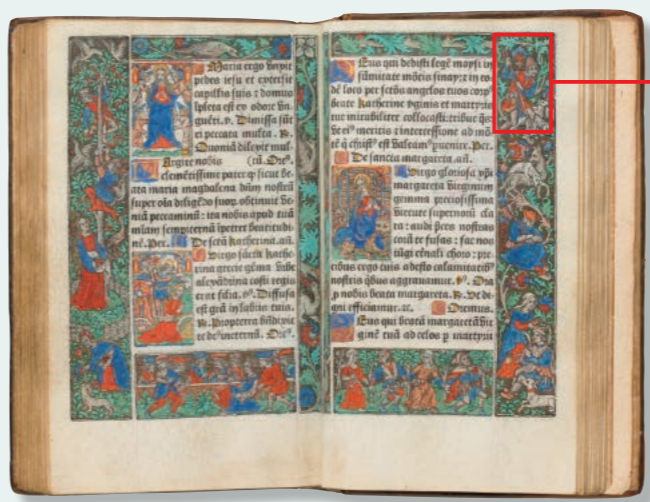 Maria ergo unxit
pedes iesu et extersit
capillis suis: domus
īpleta est ex odore ūn
guēti. ℣. Dimissa sūt
ei peccata multa. ℟.
Quoniā dilexit mul
Argire nobis (tū. Orē.
clemētissime pater q̄ sicut be
ata maria magdalena dūm nostrū
super oīa
neni peccaminū: ita nobis apud tuā
mīam sempiternā īpetret beatitudi
nē. Per. De scā katherina. añ.
Virgo sācta kathe
rina grecie gēma Vrbe
alexādrina costi regis
erat filia. ℣. Diffusa
est grā in labiis tuis.
℟. Propterea bñdixit
te deꝰ ineternū. Orē.
Eus qui dedisti legē moysi in
sūmitate mōtis sinay: in eo
dē loco per sctōs angelos tuos corpꝰ
beate katherine Vginis et martyris
tue mirabiliter collocasti: tribue qs:
Vt eiꝰ meritis et intercessione ad mō
tē q̄ christꝰ est Valeamꝰ puenire. Per.
De sancta margareta. añ.
Virgo gloriosa xp̄i
margareta Virginum
gemma preciosissima
Virtute supernorū cla
ra: audi p̄ces nostras
corā te fusas: fac nos
iūgi celali choro: pre
cibus ergo tuis adesto calamitatibꝰ
nostris qbus aggravamur. ℣. Ora
p nobis beata margareta. ℟. Vt di
gni efficiamur. ic. Oremus.
Eus qui beatā margaretā Vir
ginē tuā ad celos p martyrii